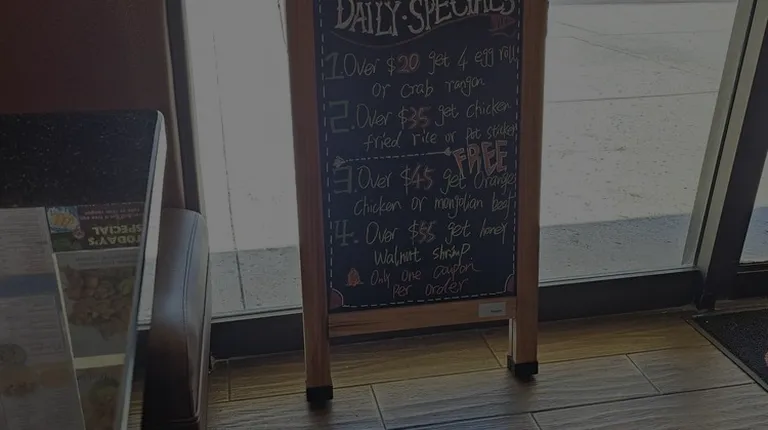 DAILY·SPECIALS
1.Over $20 get 4 egg roll
or crab rangon
2.Over $35 get chicken
fried rice or Pot sticker
FREE
3.Over $45 get Orange
chicken or mongolian beef
4. Over $55 get honey
Walnut shrimp
Only One Coupon
Per Order
TODAY'S
SPECIAL